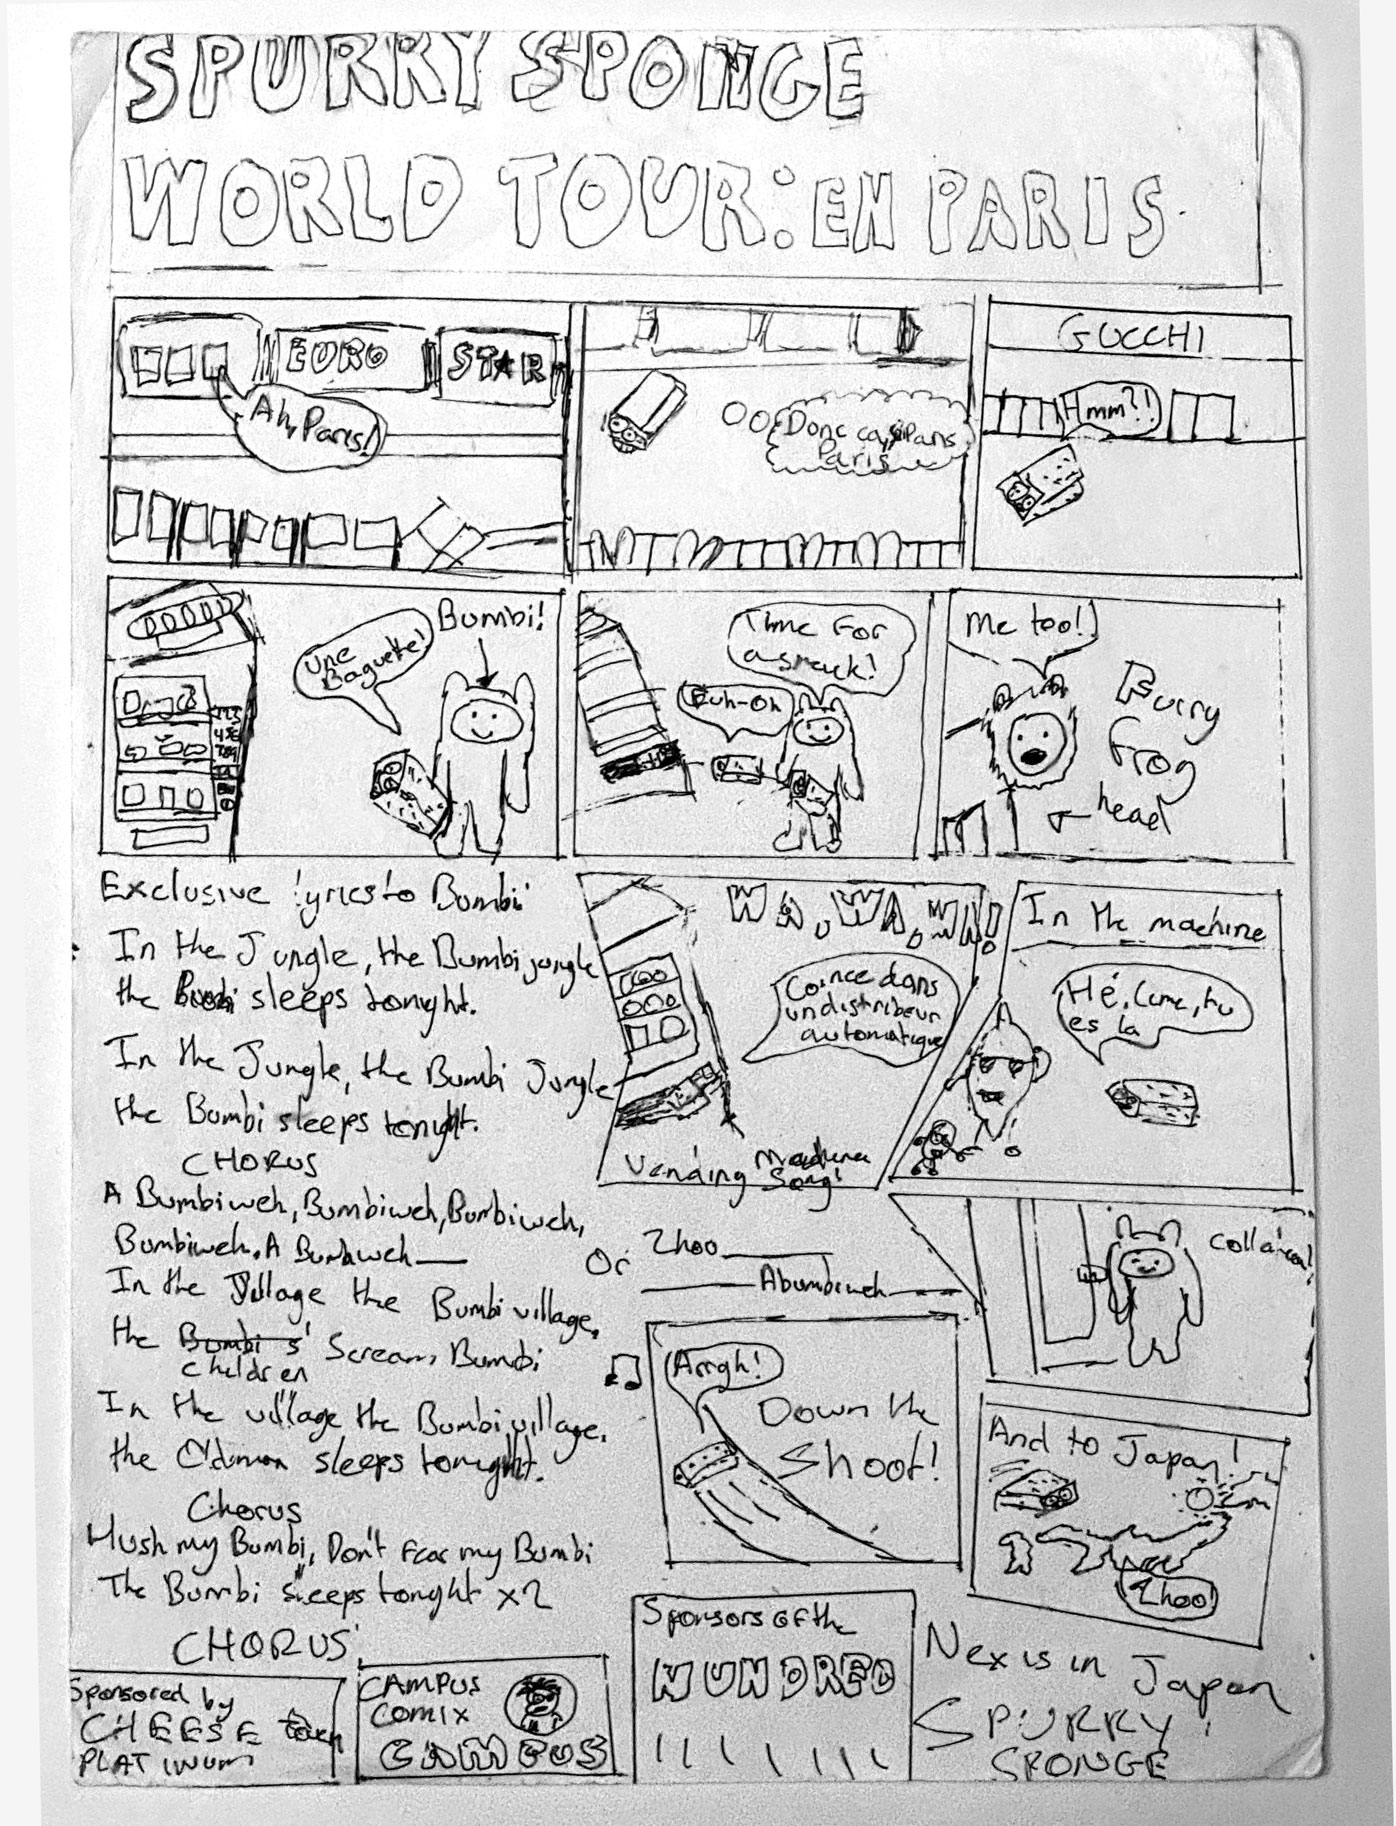 SPURRY SPONGE
WORLD TOUR: EN PARIS
EURO
STAR
Ah, Paris!
Donc ca,
Paris
GUCCHI
Hmm?!
Une
Baguette!
Bumbi!
Time for
a snack!
Euh-Oh
Me too!
Furry
frog
head
Exclusive lyrics to Bumbi
In the Jungle, the Bumbi jungle
the Bumbi sleeps tonight.
In the Jungle, the Bumbi Jungle
the Bumbi sleeps tonight.
CHORUS
A Bumbiweh, Bumbiweh, Bumbiweh,
Bumbiweh. A Bumbiweh
In the Village the Bumbi village,
the Bumbi s' Scream, Bumbi
children
In the village the Bumbi village,
the Oldman sleeps tonight.
Chorus
Hush my Bumbi, Don't fear my Bumbi
The Bumbi sleeps tonight x2
CHORUS
WA, WA, WA!
Coince dans
un distribeur
automatique
Vending Machine
Song!
In the machine
Hé, Lune, tu
es la
Or
Zhoo
Abumbiweh
Arrgh!
Down the
Shoot!
And to Japan!
Zhoo!
Sponsored by
CHEESE
PLATINUM
CAMPUS
COMIX
CAMPUS
Sponsors of the
HUNDRED
Nex is in Japan
SPURRY
SPONGE